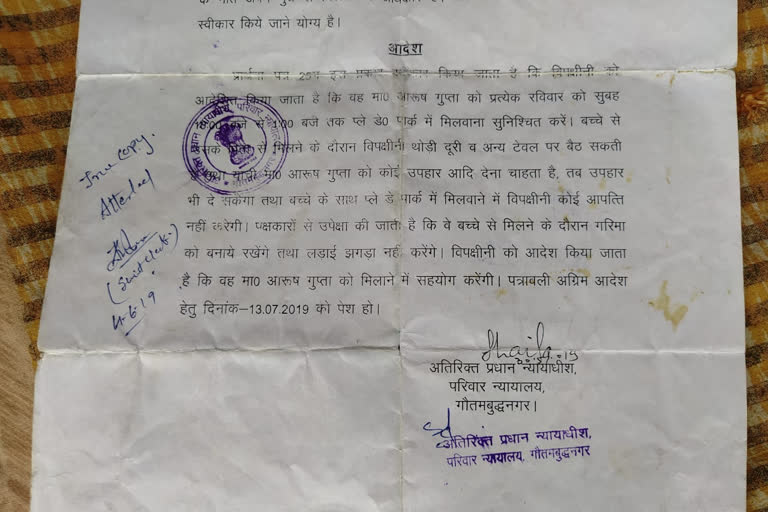 स्वीकार किये जाने योग्य है।
आदेश
प्रार्थना पत्र इस प्रकार स्वीकार किया जाता है कि विपक्षीनी को
आदेशित किया जाता है कि वह मा0 आरूष गुप्ता को प्रत्येक रविवार को सुबह
बजे से बजे तक प्ले डे0 पार्क में मिलवाना सुनिश्चित करें। बच्चे से
उसके पिता से मिलने के दौरान विपक्षीनी थोड़ी दूरी व अन्य टेवल पर बैठ सकती
है तथा मा0 आरूष गुप्ता को कोई उपहार आदि देना चाहता है, तब उपहार
भी दे सकेगा तथा बच्चे के साथ प्ले डे पार्क में मिलवाने में विपक्षीनी कोई आपत्ति
नहीं करेगी। पक्षकारों से उपेक्षा की जाती है कि वे बच्चे से मिलने के दौरान गरिमा
को बनाये रखेंगे तथा लड़ाई झगड़ा नहीं करेंगे। विपक्षीनी को आदेश किया जाता
है कि वह मा0 आरूष गुप्ता को मिलाने में सहयोग करेंगी। पत्राबली अग्रिम आदेश
हेतु दिनांक–13.07.2019 को पेश हो।
True copy.
Attested
4.6.19
अतिरिक्त प्रधान न्यायाधीश,
परिवार न्यायालय,
गौतमबुद्धनगर।
अतिरिक्त प्रधान न्यायाधीश,
परिवार न्यायालय, गौतमबुद्धनगर